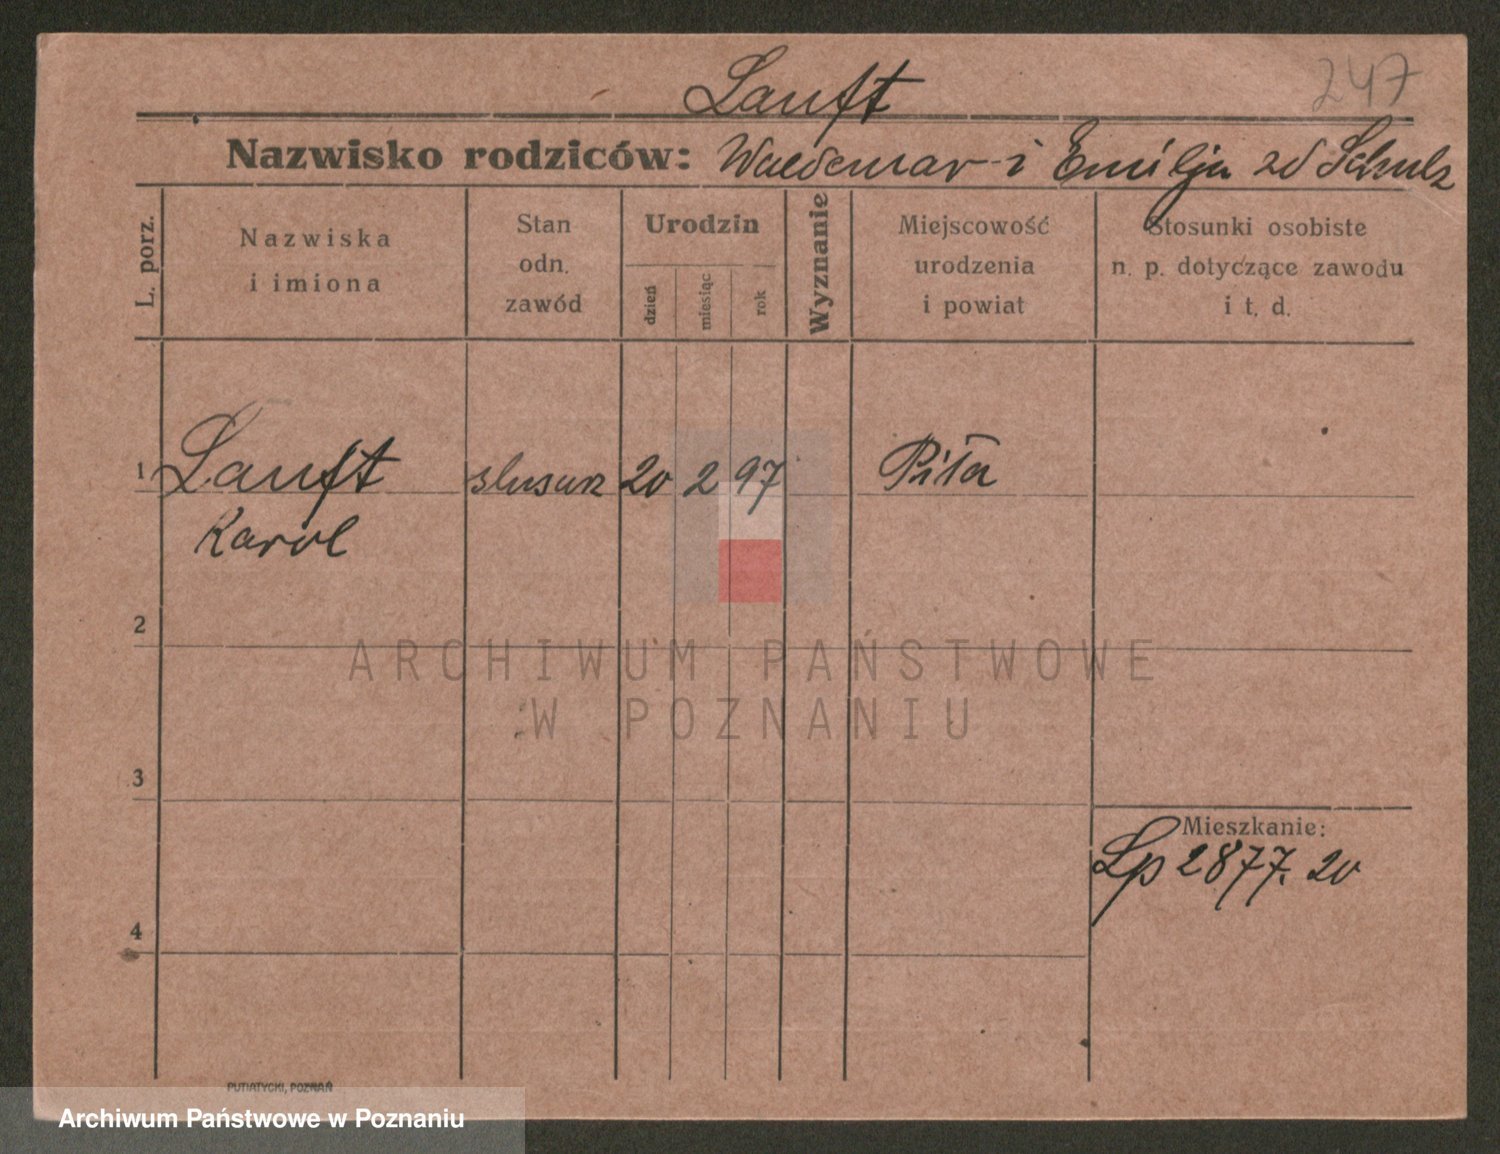 247
Lauft
Nazwisko rodziców: Waldemar i Emilja zd Schulz
L. porz.
Nazwiska
i imiona
Stan
odn.
zawód
Urodzin
dzień
miesiąc
rok
Wyznanie
Miejscowość
urodzenia
i powiat
Stosunki osobiste
n. p. dotyczące zawodu
i t. d.
1 Lauft ślusarz 20 2 97 Piła
Karol
2
ARCHIWUM PAŃSTWOWE
W POZNANIU
3
Mieszkanie:
Lp 2877.20
4
PUTIATYCKI, POZNAŃ
Archiwum Państwowe w Poznaniu